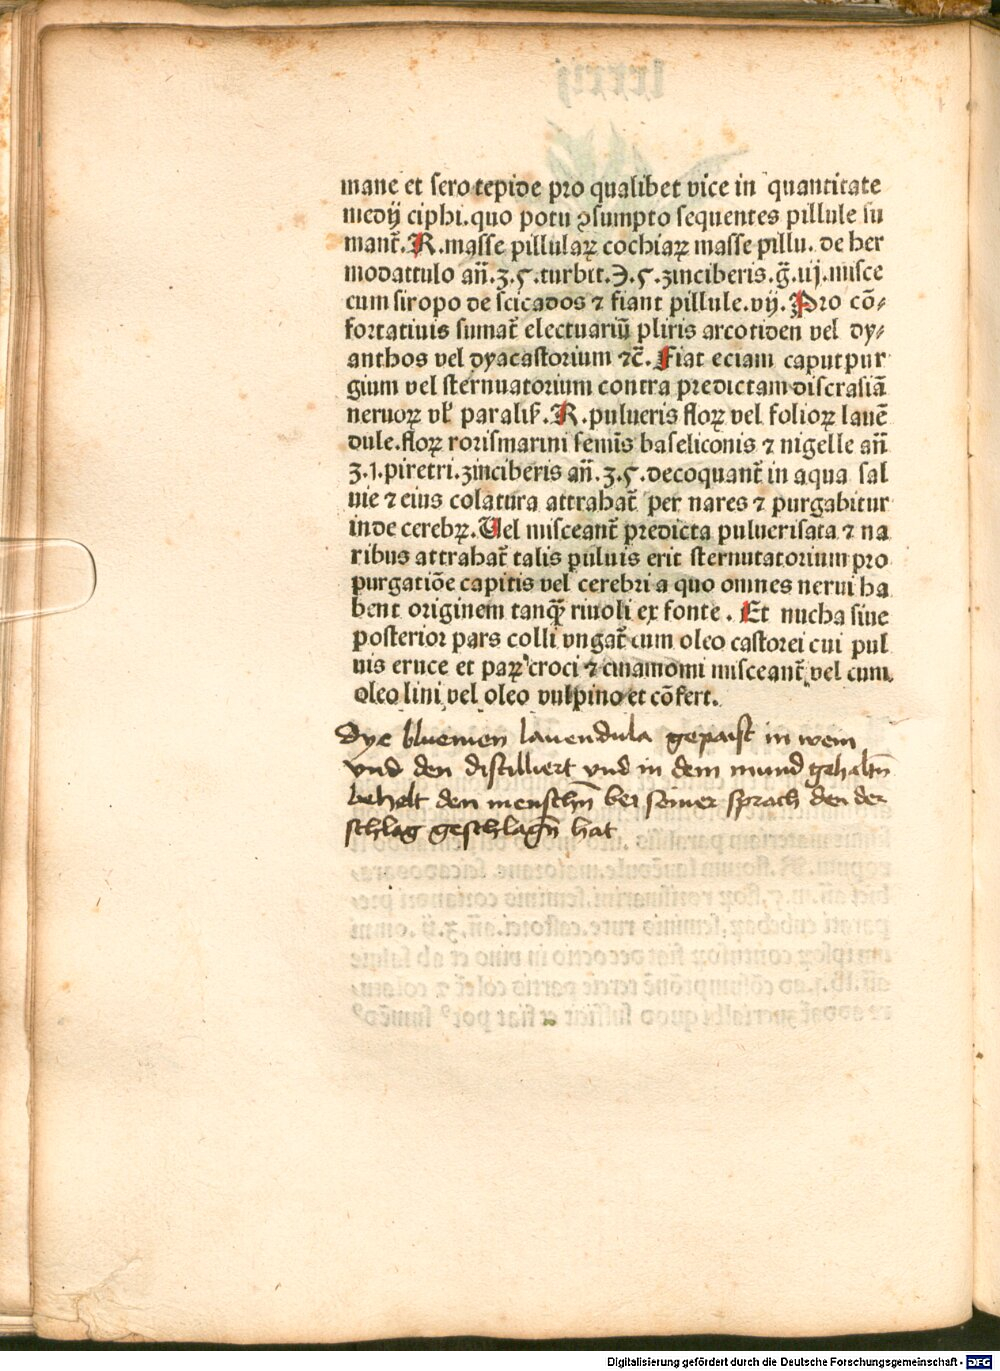 mane et sero tepide pro qualibet vice in quantitate
medij ciphi. quo potu ꝯsumpto sequentes pillule su
mant̃. R. masse pillulaꝝ cochiaꝝ masse pillu. de her
modattulo añ. ʒ. ς. turbit. ℈. ς. zinciberis. g̃. iij. misce
cum siropo de sticados ⁊ fiant pillule. vij. Pro cõ⸗
fortatiuis sumat̃ electuariũ pliris arcotiden vel dy⸗
anthos vel dyacastorium ⁊c̃. Fiat eciam caputpur
gium vel sternuatorium contra predictam discrasiã
neruoꝝ vl' paralis̃. R. pulueris floꝝ vel folioꝝ lauẽ
dule. floꝝ rorismarini semĩs baseliconis ⁊ nigelle añ
ʒ. 1. piretri. zinciberis añ. ʒ. ς. decoquant̃ in aqua sal
uie ⁊ eius colatura attrahat̃ per nares ⁊ purgabitur
inde cerebꝝ. Uel misceant̃ predicta puluerisata ⁊ na
ribus attrahat̃ talis puluis erit sternutatorium pro
purgatiõe capitis vel cerebri a quo omnes nerui ha
bent originem tanqꝫ̃ riuoli ex fonte. Et nucha siue
posterior pars colli vngat̃ cum oleo castorei cui pul
uis eruce et paꝝ croci ⁊ cinamomi misceant̃ vel cum
oleo lini vel oleo vulpino et cõfert.
Dye bluemen lauendula gepaist in wein
vnd den distilliert vnd in dem mund gehaltñ
behelt den menschñ bei seiner sprach den der
schlag geschlagñ hat
Digitalisierung gefördert durch die Deutsche Forschungsgemeinschaft - DFG